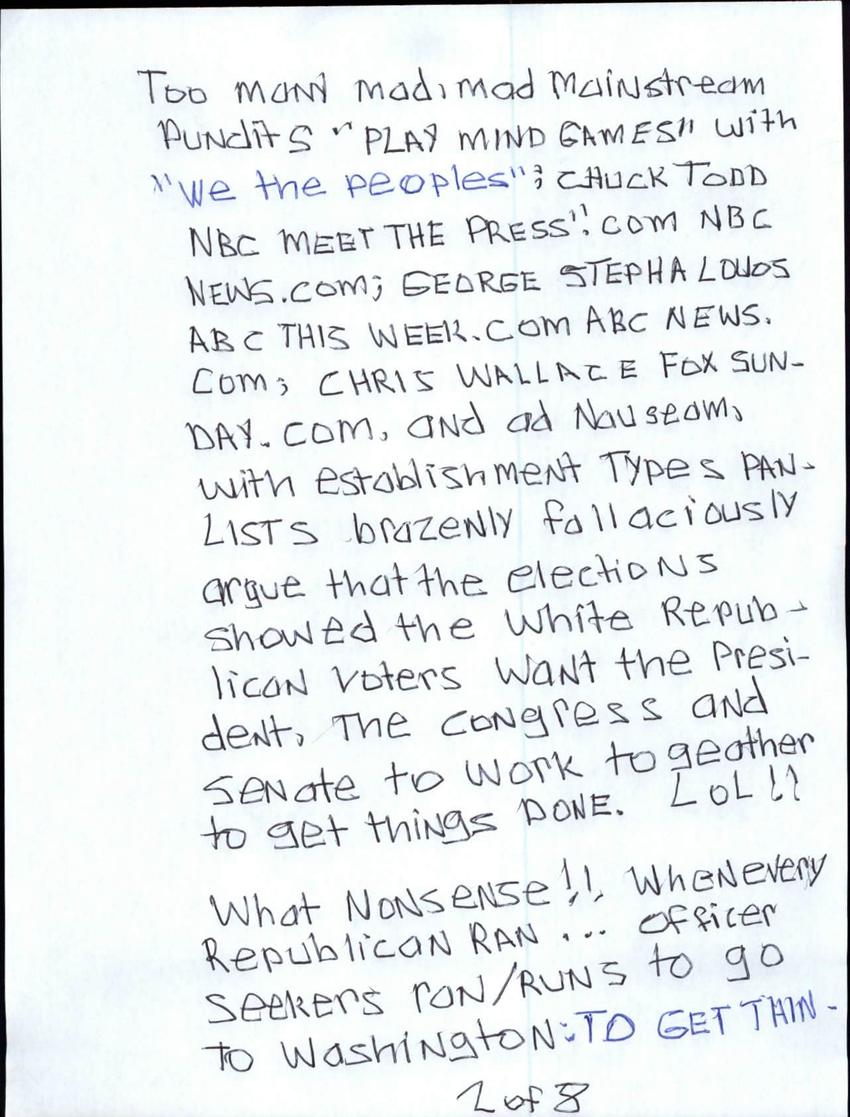 Too many mad, mad Mainstream
Pundits "PLAY MIND GAMES" with
"We the peoples"; CHUCK TODD
NBC MEET THE PRESS".COM NBC
NEWS.COM; GEORGE STEPHALOUOS
ABC THIS WEEK.COM ABC NEWS.
COM; CHRIS WALLACE FOX SUN-
DAY.COM, AND ad Nauseam,
with establishment Types PAN-
LISTS brazenly fallaciously
argue that the elections
showed the White Repub-
lican voters want the Presi-
dent, The Congress and
Senate to work togeather
to get things DONE. LOL!!
What NONSENSE!!, Whenevery
Republican RAN ... officer
seekers ran/RUNS to go
to Washington: TO GET THIN-
2 of 8